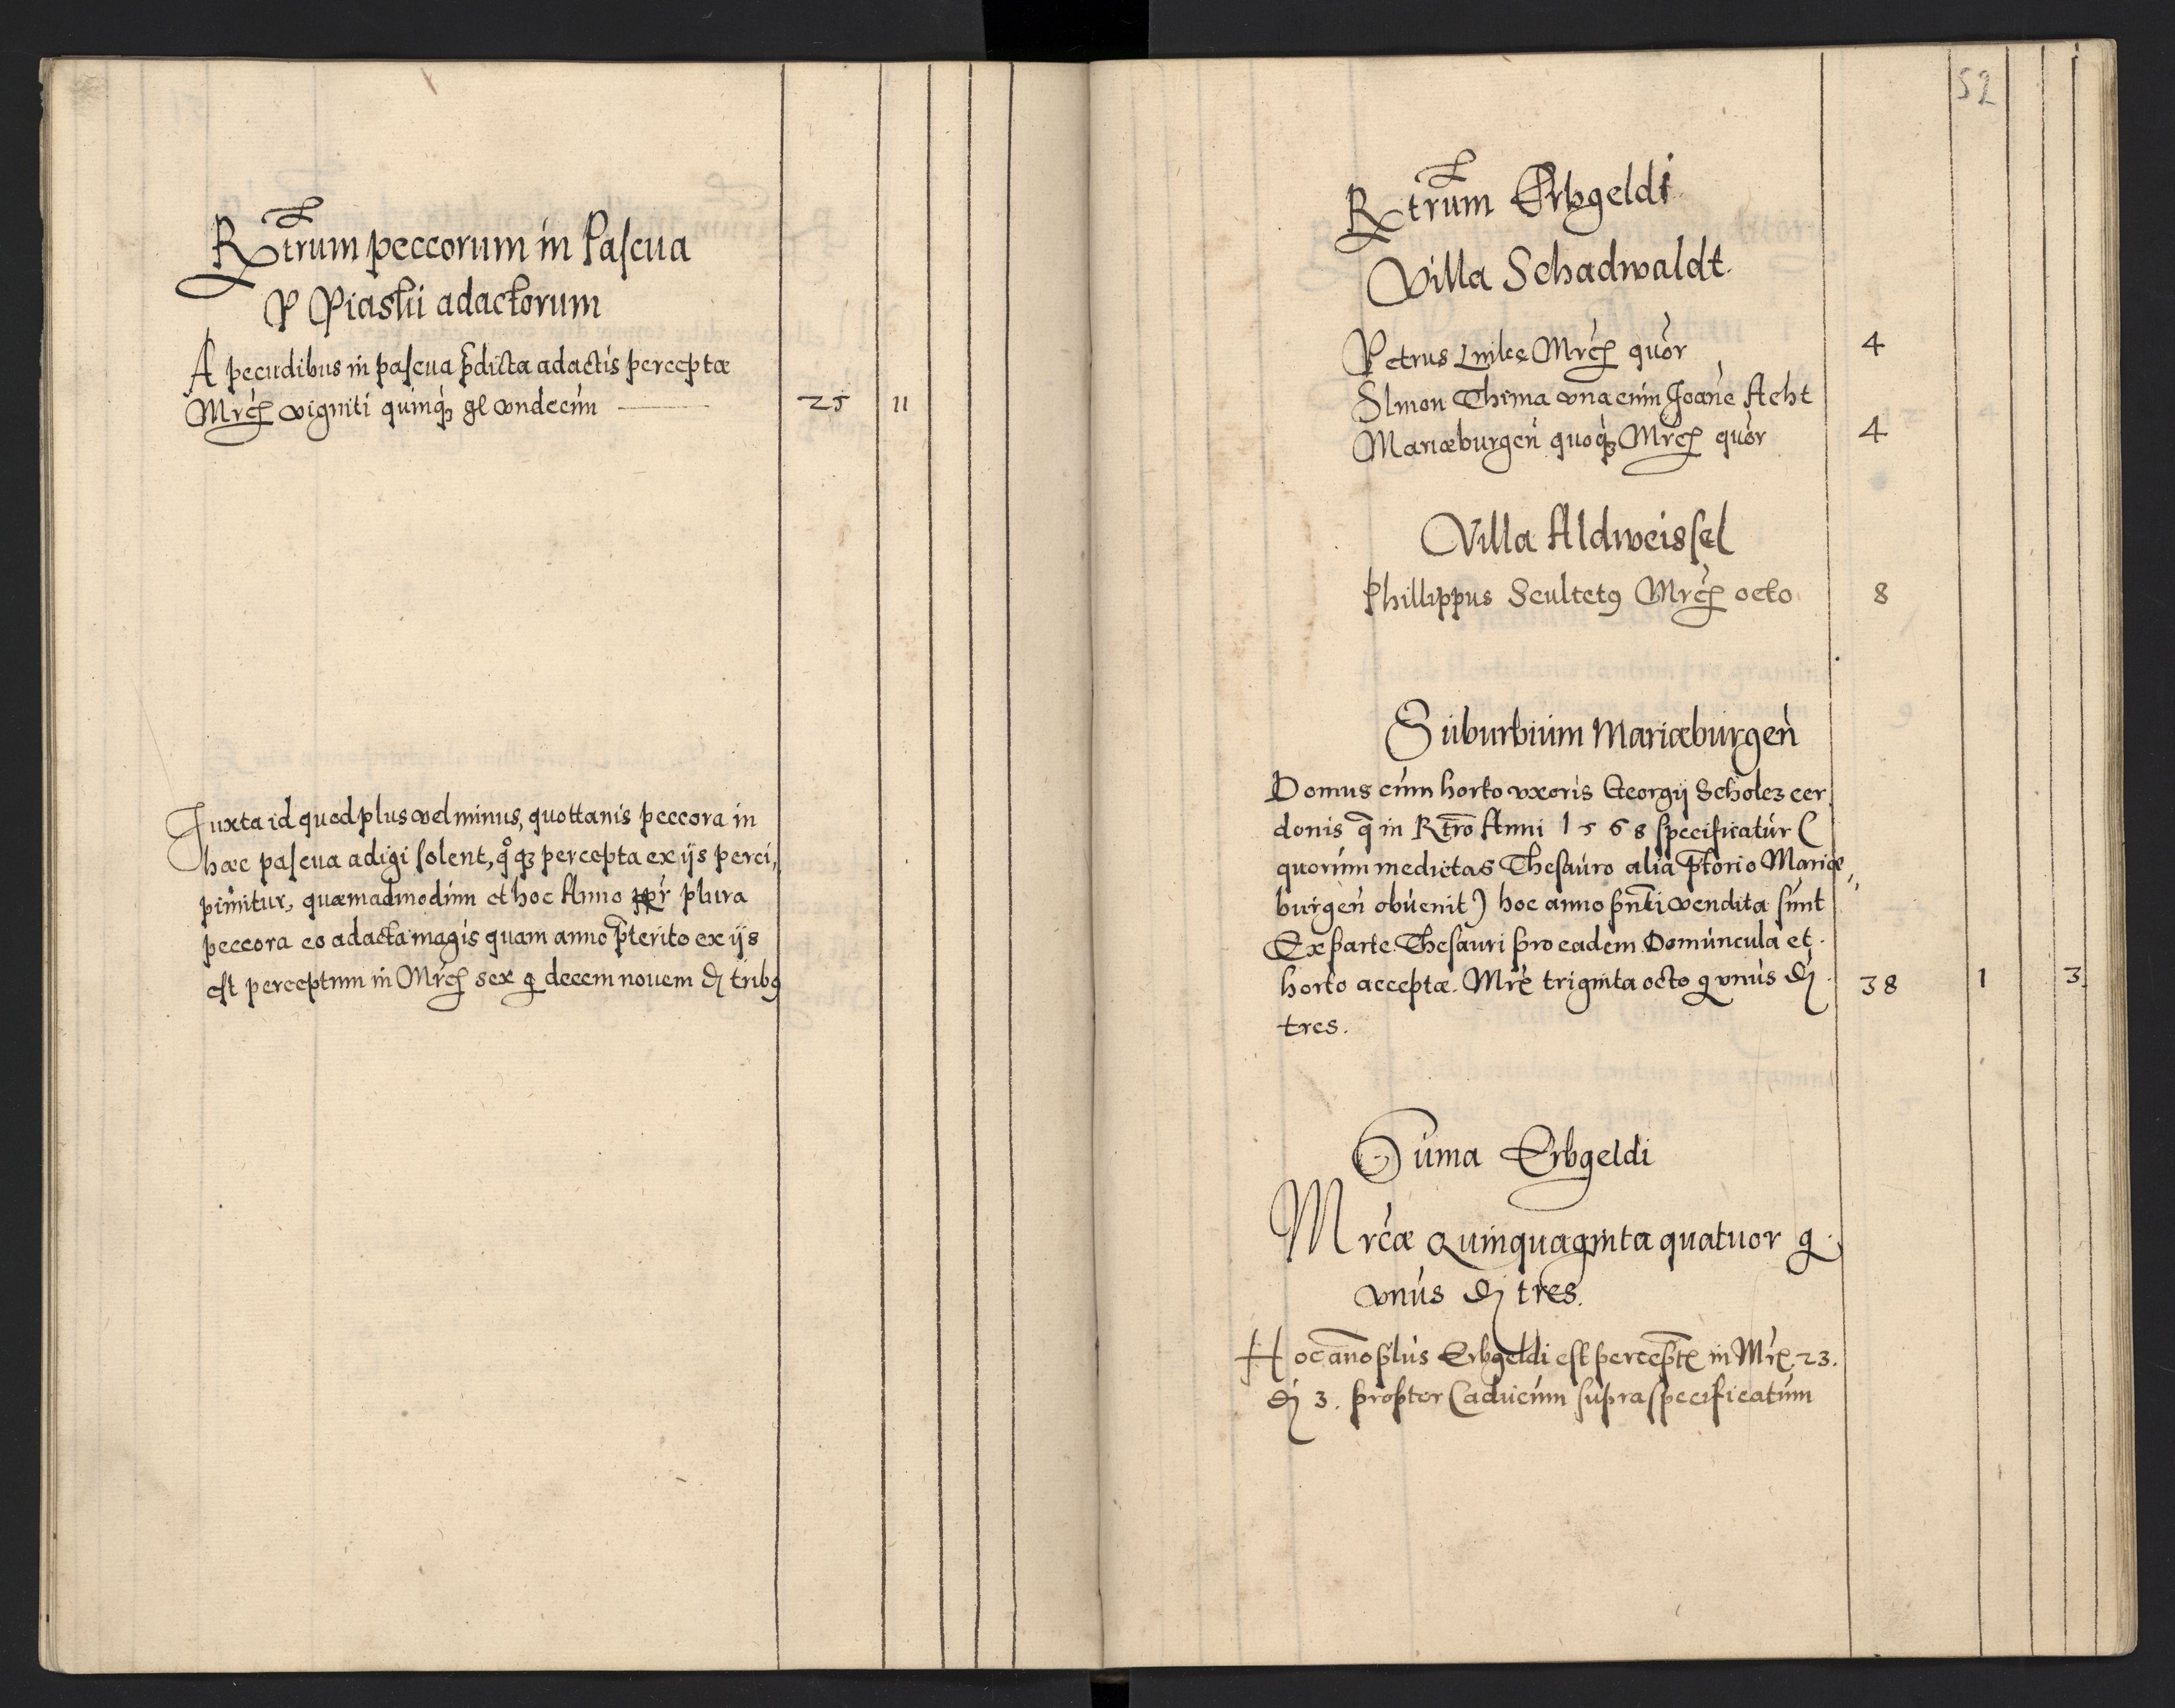 Rtrum peccorum in Pascua
P Piaskii adactorum
A pecudibus in pascua pdicta adactis perceptæ
Mrcȩ viginti quinqꝫ gl vndecim 25 11
Juxta id quod plus vel minus, quottanis peccora in
hæc pascua adigi solent, qoqꝫ percepta ex ijs perci,,
piuntur, quæmadmodum et hoc Anno ppr plura
peccora eo adacta magis quam anno pterito ex ijs
est perceptum in Mrcȩ sex g decem nouem d tribꝯ
52
Rtrum Erbgeldi
Villa Schadwaldt.
Petrus Mrcȩ quor 4
Simon Thima vna cum Joane Acht
Mariæburgen quoqꝫ Mrcȩ quor 4
Villa Aldweissel
Phillippus Scultetꝯ Mrcȩ octo 8
Suburbium Mariæburgen
Domus cum horto vxoris Georgij Scholcz cer
donis q in Rtro Anni 1568 specificatur (
quorum medietas Thesauro alia ptorio Mariæ,,
burgen obuenit) hoc anno pnti vendita sunt
Ex parte Thesauri pro eadem Domuncula et
horto acceptæ. Mrc triginta octo g vnus d 38 1 3
tres.
Suma Erbgeldi
Mrcæ Quinquaginta quatuor g
vnus d tres.
Hoc ano plus Erbgeldi est percept in Mrc 23.
d 3. propter Caducum supra specificatum